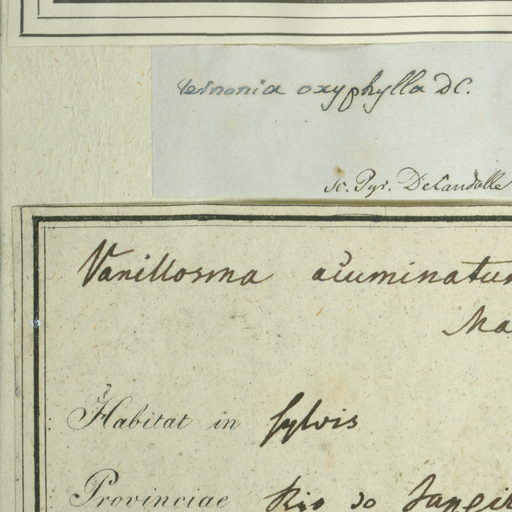 Vernonia oxyphylla DC.
sc. Pyr. DeCandolle
Vanillosma acuminatum
Ma
Habitat in sylvis
Provinciae Rio do Janeir